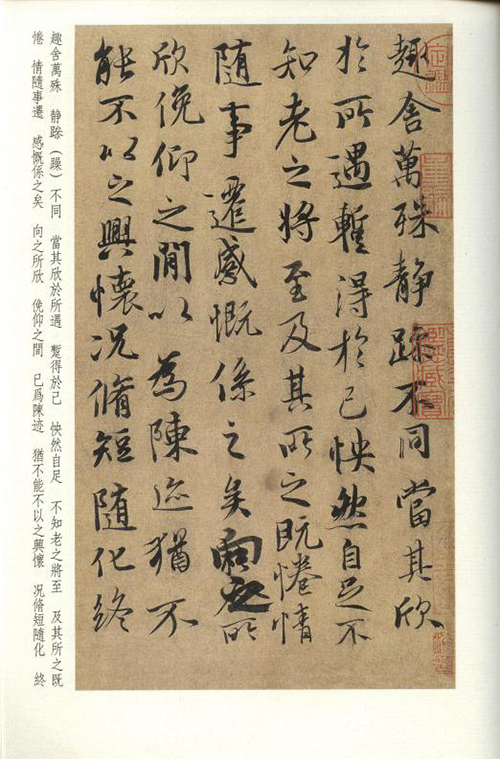 趣舍萬殊静䠂不同當其欣
於所遇蹔得於己怏然自足不
知老之將至及其所之既惓情
随事遷感慨係之矣向之所
欣俛仰之間以為陳迹猶不
能不以之興懷况脩短隨化終
趣舍萬殊 静䠂（躁）不同 當其欣於所遇 蹔得於己 怏然自足 不知老之將至 及其所之既
惓 情隨事遷 感慨係之矣 向之所欣 俛仰之間 已爲陳迹 猶不能不以之興懷 況脩短隨化 終